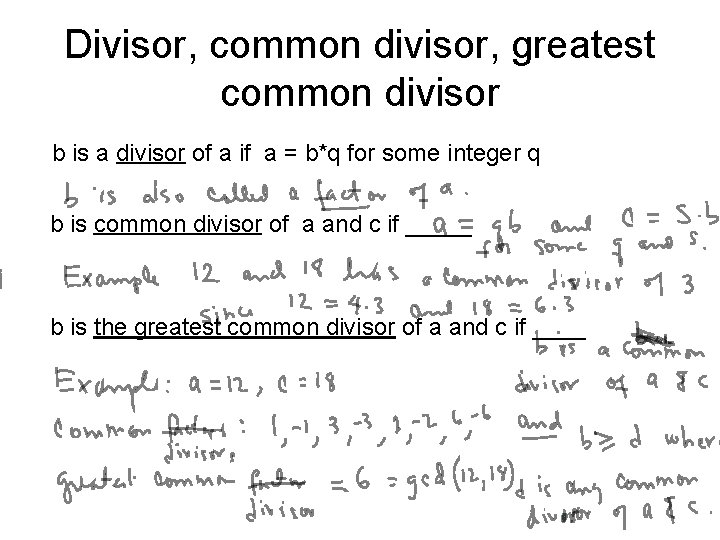 Divisor, common divisor, greatest
common divisor
b is a divisor of a if a = b*q for some integer q
b is also called a factor of a.
b is common divisor of a and c if a = qb and c = s.b
for some q and s.
Example 12 and 18 has a common divisor of 3
since 12 = 4.3 and 18 = 6.3
b is the greatest common divisor of a and c if ____
b is a common
divisor of a & c
Example: a=12, c=18
common divisors: 1, -1, 3, -3, 2, -2, 6, -6 and
b ≥ d where
greatest common divisor = 6 = gcd(12,18)
d is any common
divisor of a & c.